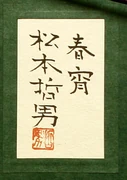 春宵
松本哲男